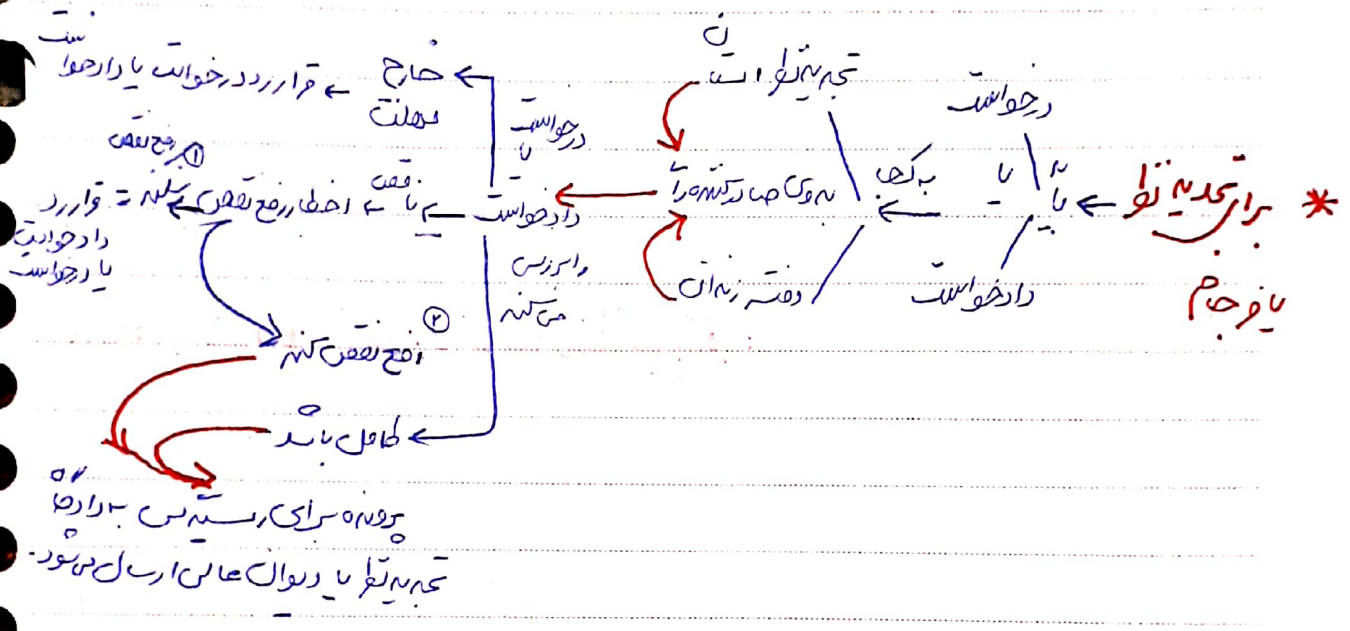 * برای تجدید نظر یا فرجام
با
درخواست
یا
دادخواست
به کجا
تجدید نظر استان
بدوی صادر کننده رأ
دفتر زندان
درخواست یا
دادخواست
را بررسی می کند
خارج مهلت
قرار رد درخواست یا دادخواست
ناقص
اخطار رفع نقص
① رفع نقص نکند = قرار رد دادخواست یا درخواست
② رفع نقص کند
کامل باشد
پرونده برای رسیدگی به دادگاه
تجدید نظر یا دیوان عالی ارسال می شود.